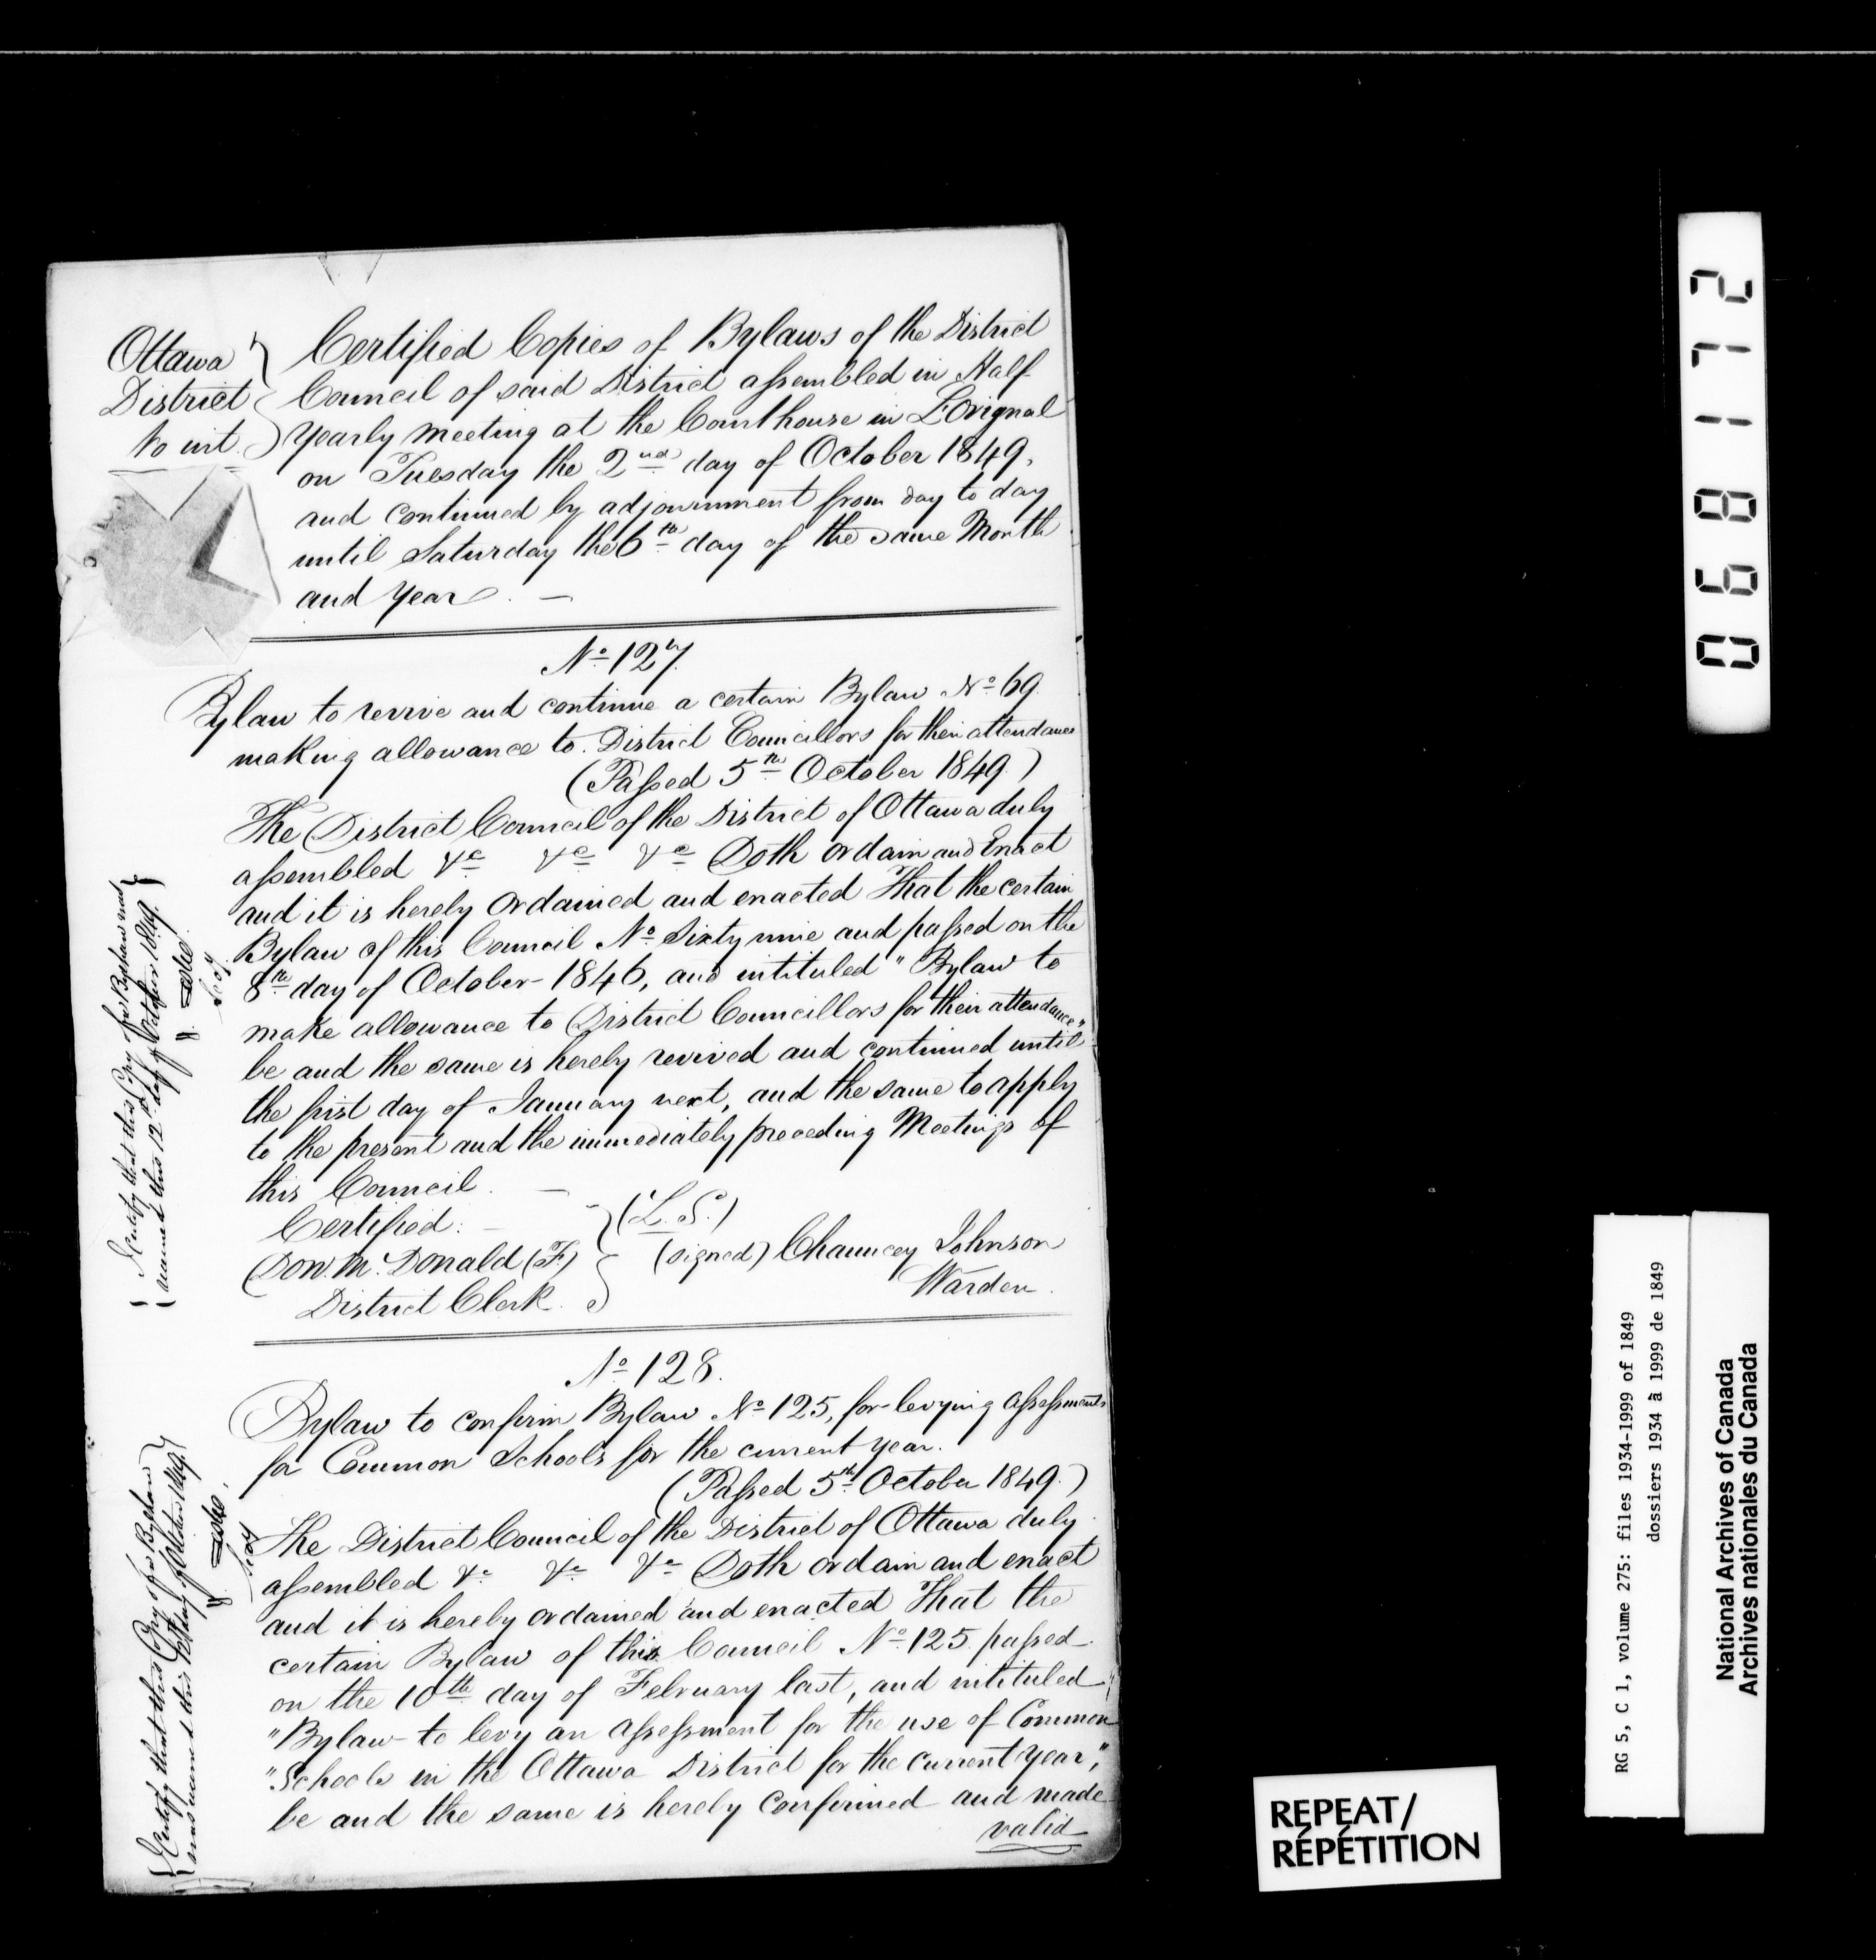 Ottawa
District
to wit.
Certified Copies of Bylaws of the District
Council of said District assembled in Half
Yearly meeting at the Courthouse in L'Orignal
on Tuesday the 2nd day of October 1849,
and continued by adjournment from day to day
until Saturday the 6th day of the same Month
and Year. —
No 127.
Bylaw to revive and continue a certain Bylaw No 69
making allowance to District Councillors for their attendance
(Passed 5th October 1849.)
The District Council of the District of Ottawa duly
assembled &c &c &c Doth ordain and Enact
and it is hereby Ordained and enacted That the certain
Bylaw of this Council No Sixty nine and passed on the
8th day of October 1846, and intituled "Bylaw to
make allowance to District Councillors for their attendance"
be and the same is hereby revived and continued until
the first day of January next, and the same to apply
to the present and the immediately preceding Meetings of
this Council. —
Certified:
Don. McDonald (F)
District Clerk.
(L. S.)
(signed) Chauncey Johnson
Warden.
No 128.
Bylaw to confirm Bylaw No 125, for levying assessments
for Common Schools for the current year.
(Passed 5th October 1849.)
The District Council of the District of Ottawa duly
assembled &c &c &c Doth ordain and enact
and it is hereby ordained and enacted That the
certain Bylaw of this Council No 125 passed
on the 10th day of February last, and intituled
"Bylaw to levy an assessment for the use of Common
"Schools in the Ottawa District for the current year",
be and the same is hereby confirmed and made
valid
I certify that this Copy of the Bylaw was
received this 12th day of October 1849.
Secy
I certify that this Copy of the Bylaw
was received this day of October 1849
Secy
068172
RG 5, C 1, volume 275: files 1934-1999 of 1849
dossiers 1934 à 1999 de 1849
National Archives of Canada
Archives nationales du Canada
REPEAT/
RÉPÉTITION